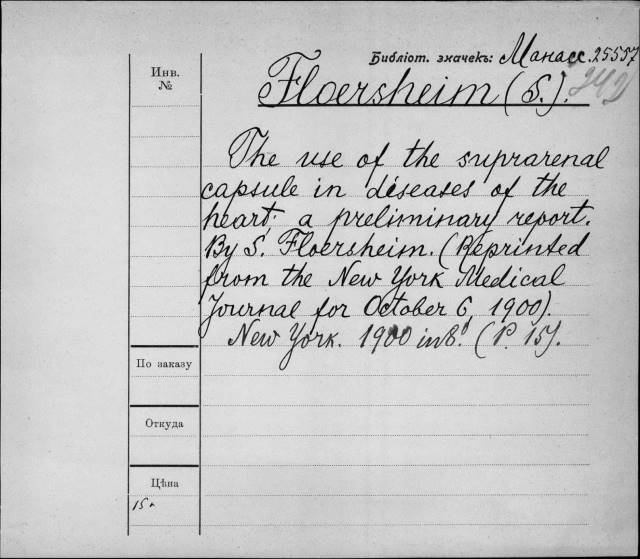 Библіот. значекъ: Манасс. 25557
Инв.
№
Floersheim (S.).
The use of the suprarenal
capsule in diseases of the
heart; a preliminary report.
By S. Floersheim. (Reprinted
from the New York Medical
Journal for October 6, 1900).
New York. 1900 in 8°. (P. 15).
По заказу
Откуда
Цѣна